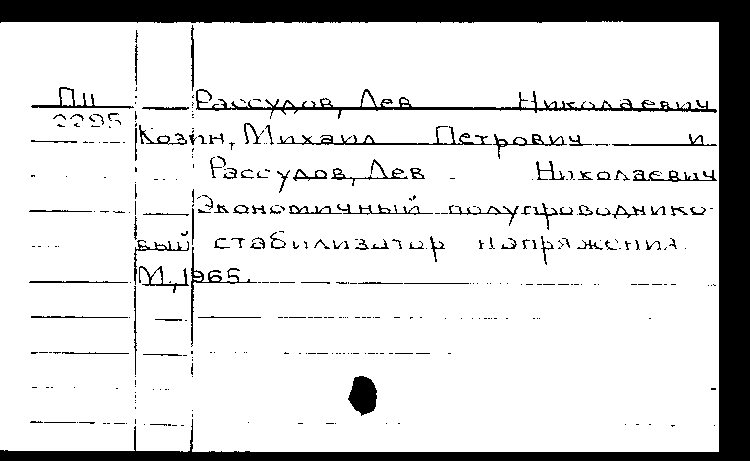 П.11 Рассудов, Лев Николаевич
2295 Козин, Михаил Петрович и
Рассудов, Лев Николаевич
Экономичный полупроводнико-
вый стабилизатор напряжения.
М., 1965.